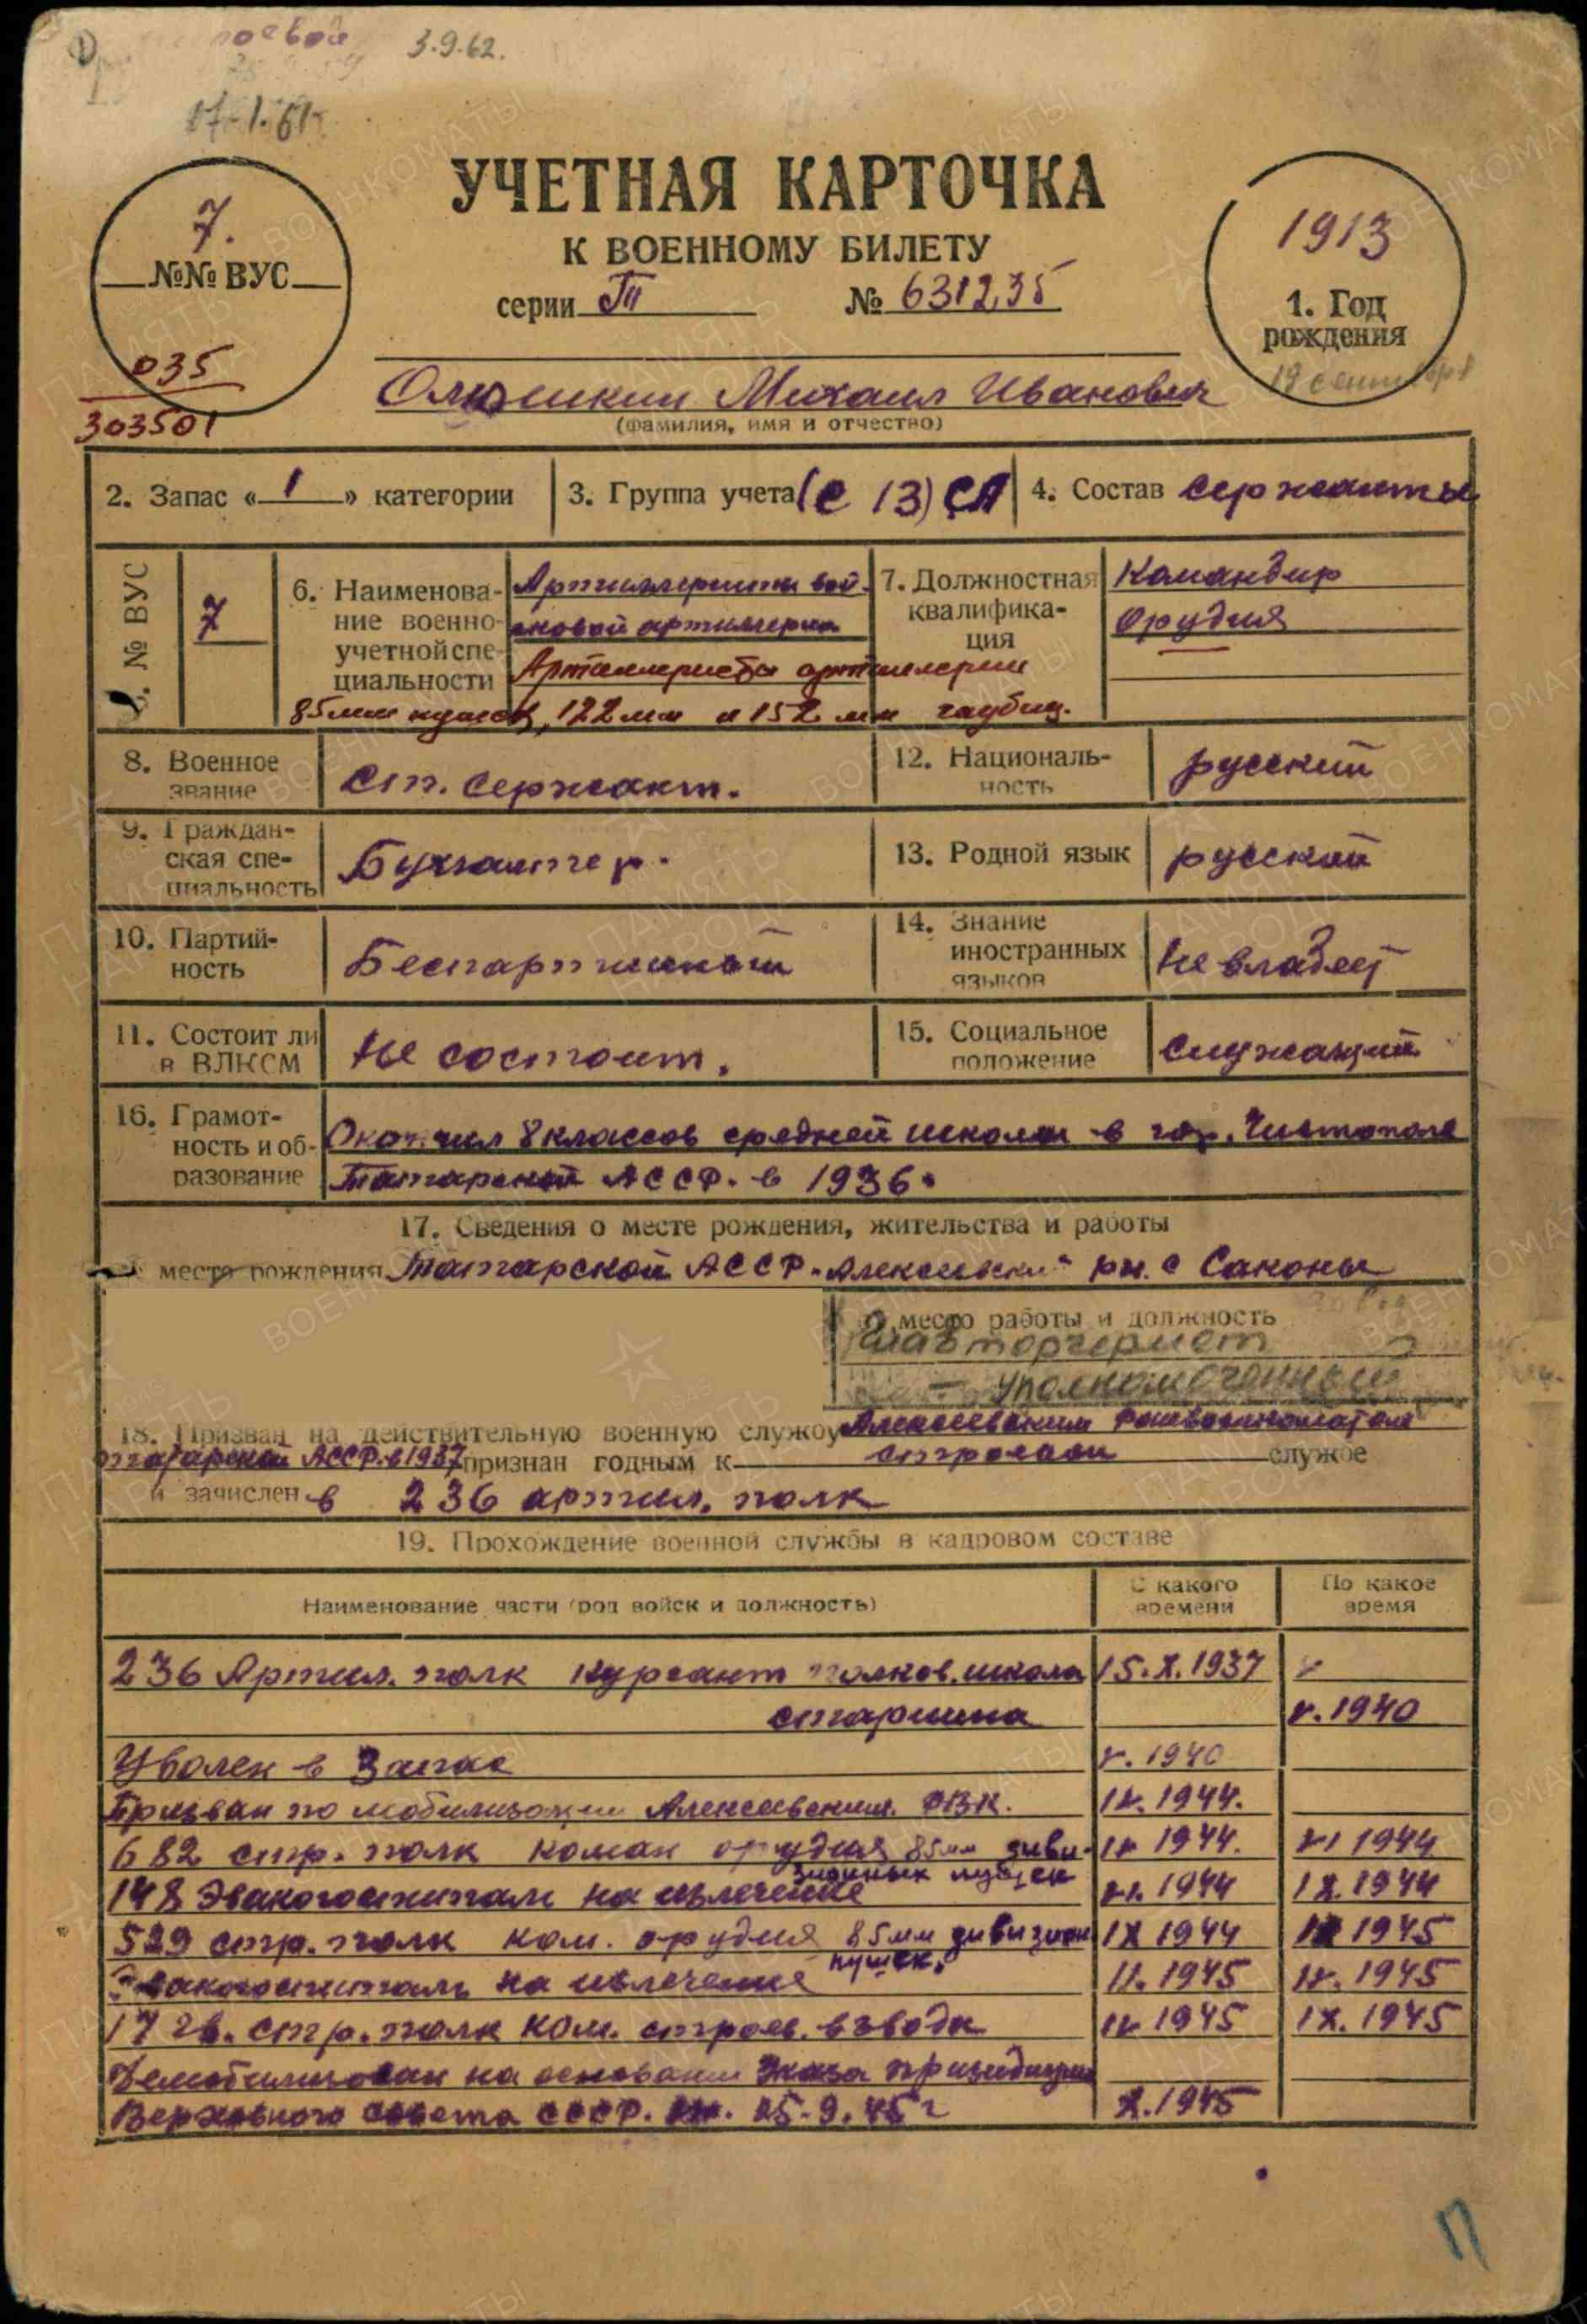 3.9.62.
17.1.61
УЧЕТНАЯ КАРТОЧКА
К ВОЕННОМУ БИЛЕТУ
серии ТП № 631235
7.
№№ ВУС
035
303501
1913
1. Год
рождения
19 сентября
Олюшкин Михаил Иванович
(фамилия, имя и отчество)
2. Запас « 1 » категории
3. Группа учета (С 13) СА
4. Состав сержанты
№ ВУС
7
6. Наименова-
ние военно-
учетной спе-
циальности
Артиллеристы вой-
сковой артиллерии
Артиллеристы артиллерии
85 мм пушек, 122 мм и 152 мм гаубиц.
7. Должностная
квалифика-
ция
Командир
орудия
8. Военное
звание
Ст. сержант.
12. Националь-
ность
русский
9. Граждан-
ская спе-
циальность
Бухгалтер.
13. Родной язык
русский
10. Партий-
ность
Беспартийный
14. Знание
иностранных
языков
Не владеет
11. Состоит ли
в ВЛКСМ
Не состоит.
15. Социальное
положение
Служащий
16. Грамот-
ность и об-
разование
Окончил 8 классов средней школы в гор. Чистополе
Татарской АССР. в 1936.
17. Сведения о месте рождения, жительства и работы
место рождения Татарской АССР. Алексеевский рн. с Саконы
место работы и должность
Главвторчермет
— уполномоченный
18. Призван на действительную военную службу Алексеевским Райвоенкоматом
татарской АССР. в 1937 признан годным к строевой службе
и зачислен в 236 артил. полк
19. Прохождение военной службы в кадровом составе
Наименование части (род войск и должность)
С какого
времени
По какое
время
236 Артил. полк курсант полков. школы 15.X.1937
старшина V.1940
Уволен в Запас V.1940
Призван по мобилизации Алексеевским РВК. IV.1944.
682 стр. полк коман орудия 85мм диви- IV 1944. VI 1944
зионных пушек
148 Эвакогоспиталь на излечение VI.1944 IX.1944
529 стр. полк ком. орудия 85мм дивизион IX 1944 1945
пушек.
Эвакогоспиталь на излечение II.1945 IV.1945
17 гв. стр. полк ком. строев. взвода IV 1945 IX.1945
Демобилизован на основании Указа президиума
Верховного совета СССР. от. 25.9.45 г X.1945
П